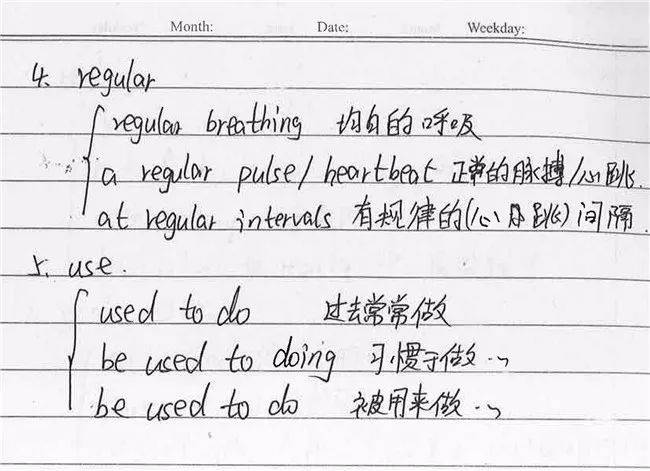 Month: Date: Weekday:
4. regular
regular breathing 均匀的呼吸
a regular pulse/heartbeat 正常的脉搏/心跳.
at regular intervals 有规律的(心跳)间隔.
5. use.
used to do 过去常常做
be used to doing 习惯于做…
be used to do 被用来做…